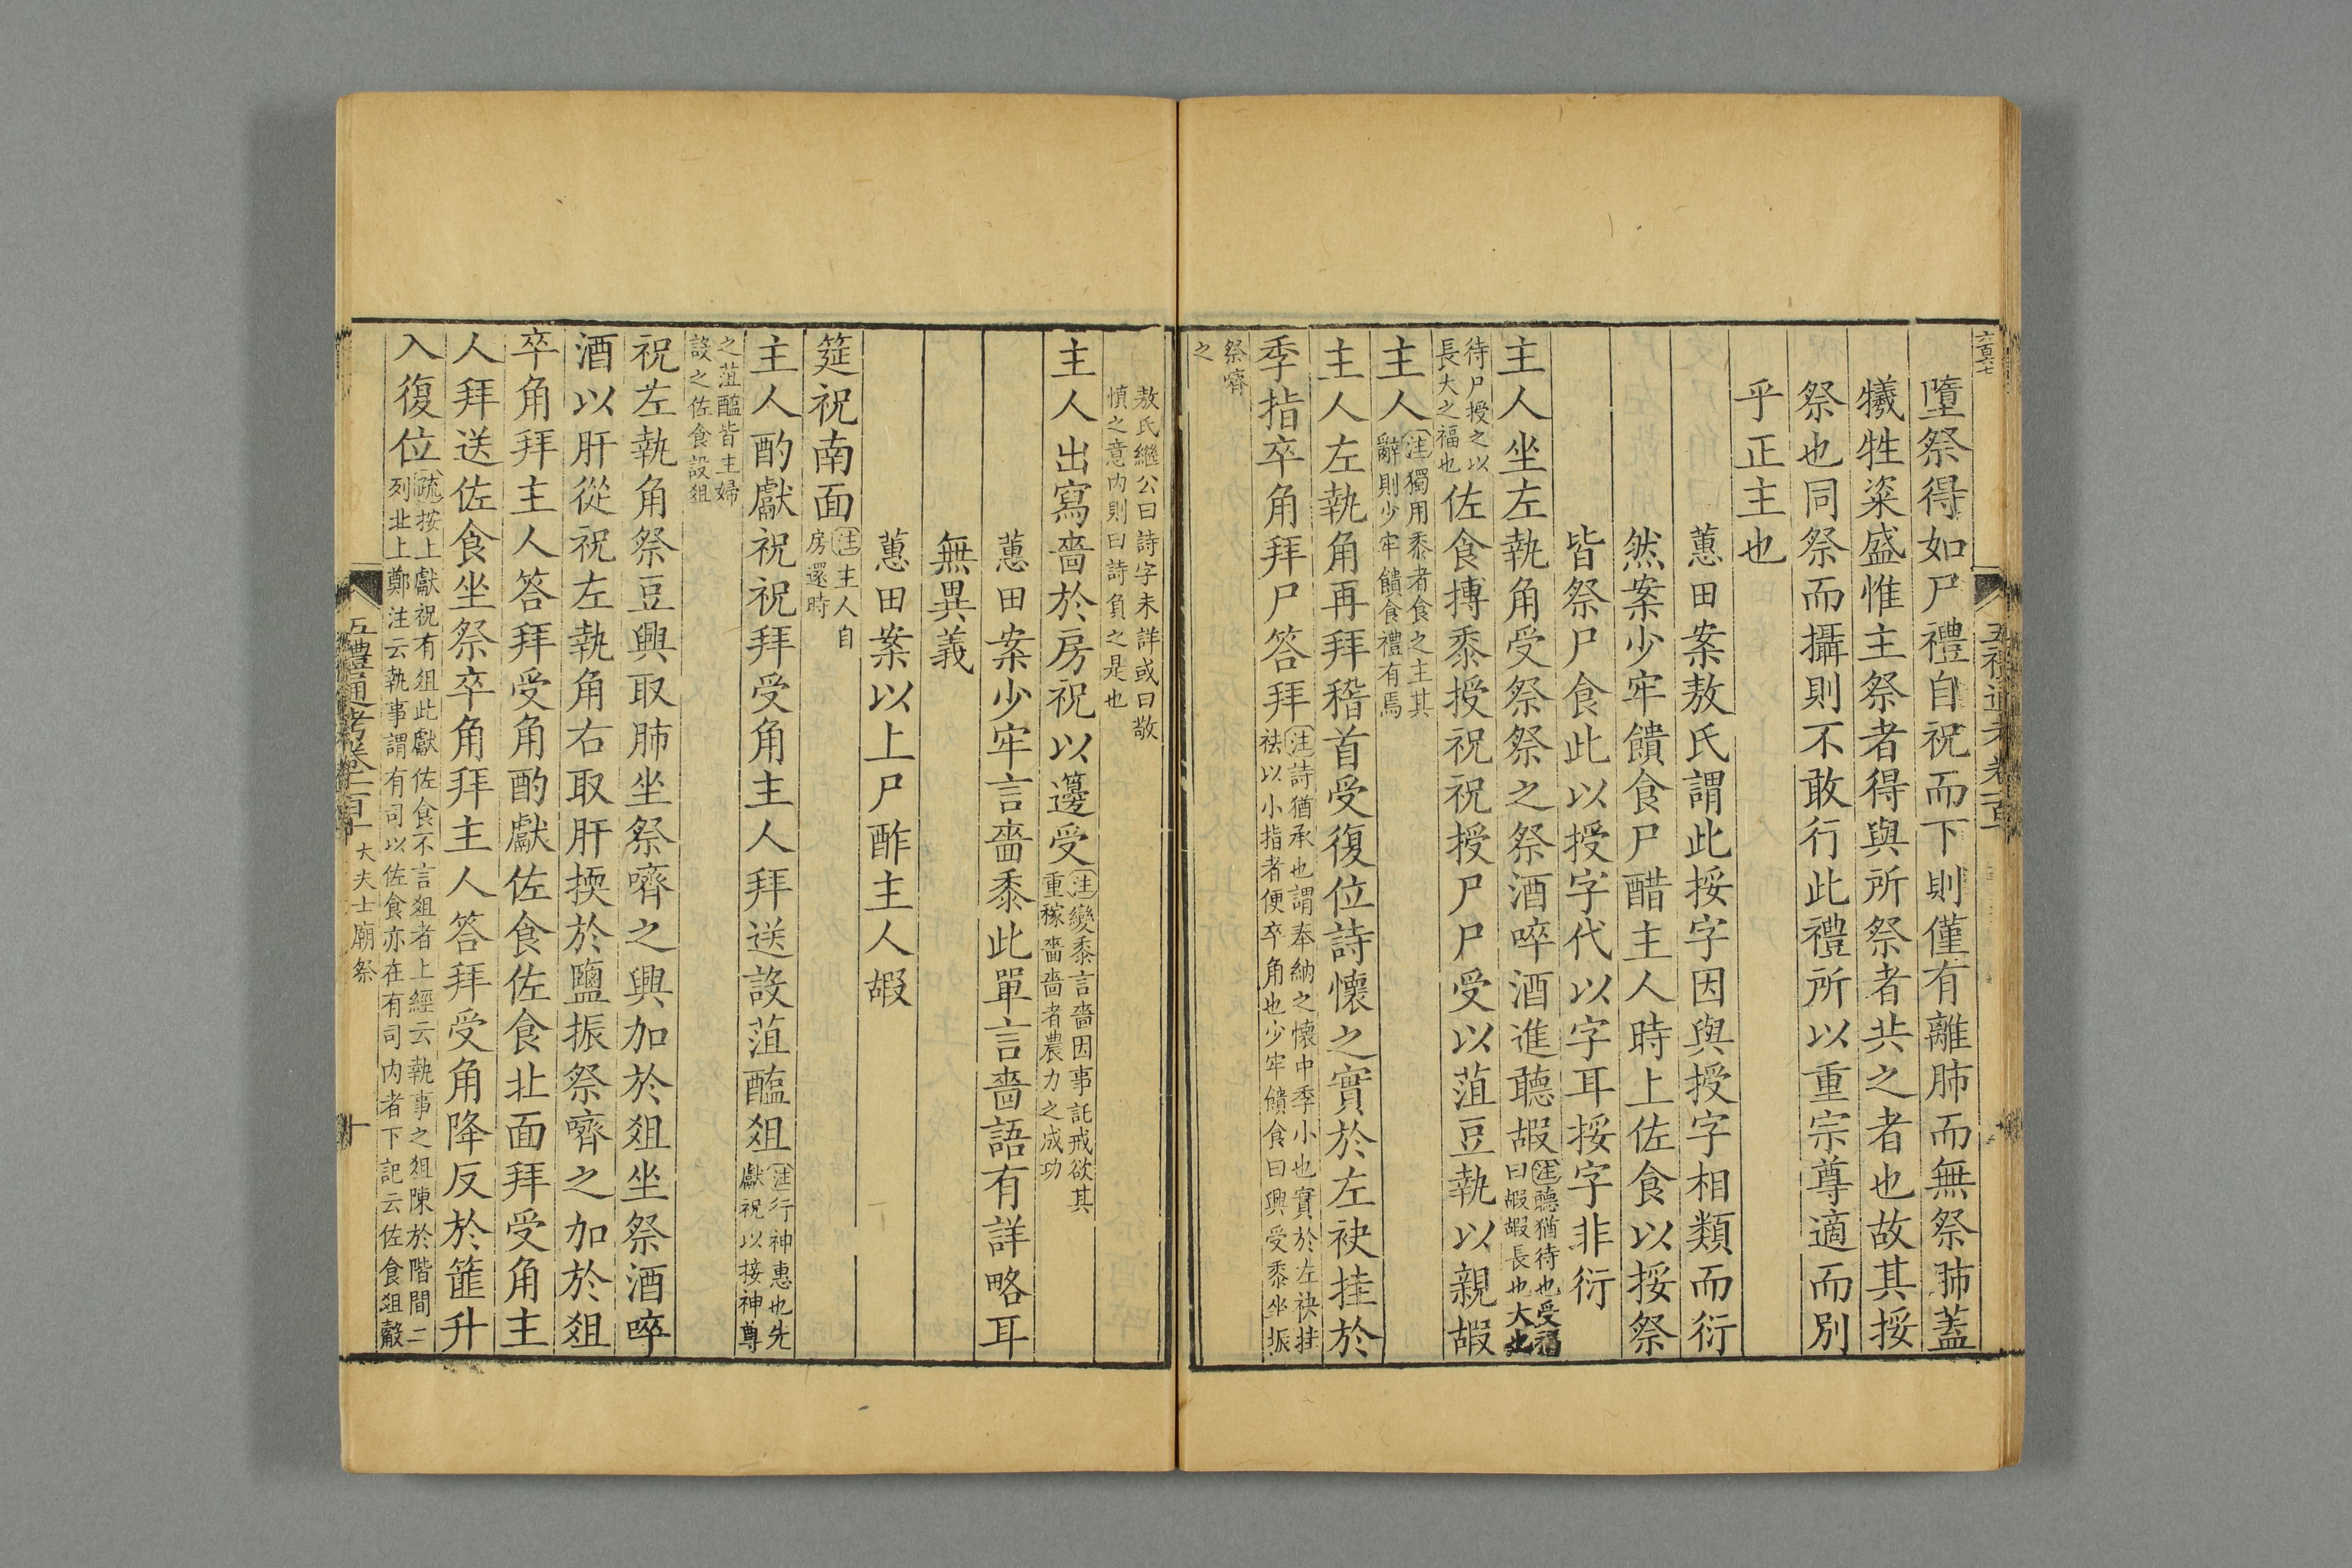 六百六七
墮祭得如尸禮自祝而下則僅有離肺而無祭肺蓋
犧牲粢盛惟主祭者得與所祭者共之者也故其挼
祭也同祭而攝則不敢行此禮所以重宗尊適而別
乎正主也
蕙田案敖氏謂此挼字因與授字相類而衍
然案少牢饋食尸醋主人時上佐食以挼祭
皆祭尸食此以授字代以字耳挼字非衍
主人坐左執角受祭祭之祭酒啐酒進聽嘏注聽猶待也受福
曰嘏嘏長也大也
待尸授之以
長大之福也佐食摶黍授祝祝授尸尸受以菹豆執以親嘏
主人注獨用黍者食之主其
辭則少牢饋食禮有焉
主人左執角再拜稽首受復位詩懷之實於左袂挂於
季指卒角拜尸答拜注詩猶承也謂奉納之懷中季小也實於左袂挂
袪以小指者便卒角也少牢饋食曰興受黍坐振
祭嚌
之
敖氏繼公曰詩字未詳或曰敬
慎之意內則曰詩負之是也
主人出寫嗇於房祝以籩受注變黍言嗇因事託戒欲其
重稼嗇嗇者農力之成功
蕙田案少牢言嗇黍此單言嗇語有詳略耳
無異義
蕙田案以上尸酢主人嘏
筵祝南面注主人自
房還時
主人酌獻祝祝拜受角主人拜送設菹醢俎注行神惠也先
獻祝以接神尊
之菹醢皆主婦
設之佐食設俎
祝左執角祭豆興取肺坐祭嚌之興加於俎坐祭酒啐
酒以肝從祝左執角右取肝換於鹽振祭嚌之加於俎
卒角拜主人答拜受角酌獻佐食佐食北面拜受角主
人拜送佐食坐祭卒角拜主人答拜受角降反於篚升
入復位疏按上獻祝有俎此獻佐食不言俎者上經云執事之俎陳於階間二
列北上鄭注云執事謂有司以佐食亦在有司內者下記云佐食俎觳
五禮通考卷一百十 大夫士廟祭
十